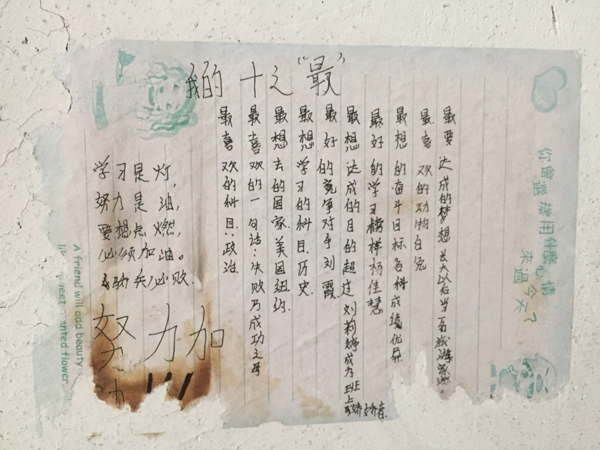 我的十之“最”
最要达成的梦想 长大以后当名旅游家
最喜欢的动物白兔
最想的奋斗目标各科成绩优异
最好的学习榜样杨佳慧
最想达成的目的超过刘莉婷成为班上
最好的竞争对手刘霞
最想学习的科目历史
最想去的国家:美国纽约
最喜欢的一句话:失败乃成功之母
最喜欢的科目:政治
学习是灯,
努力是油,
要想点燃,
必须加油。
必败.
努力加
油!!!
你會選擇用什麼心情
來過今天?
A friend will add beauty
scented flower.